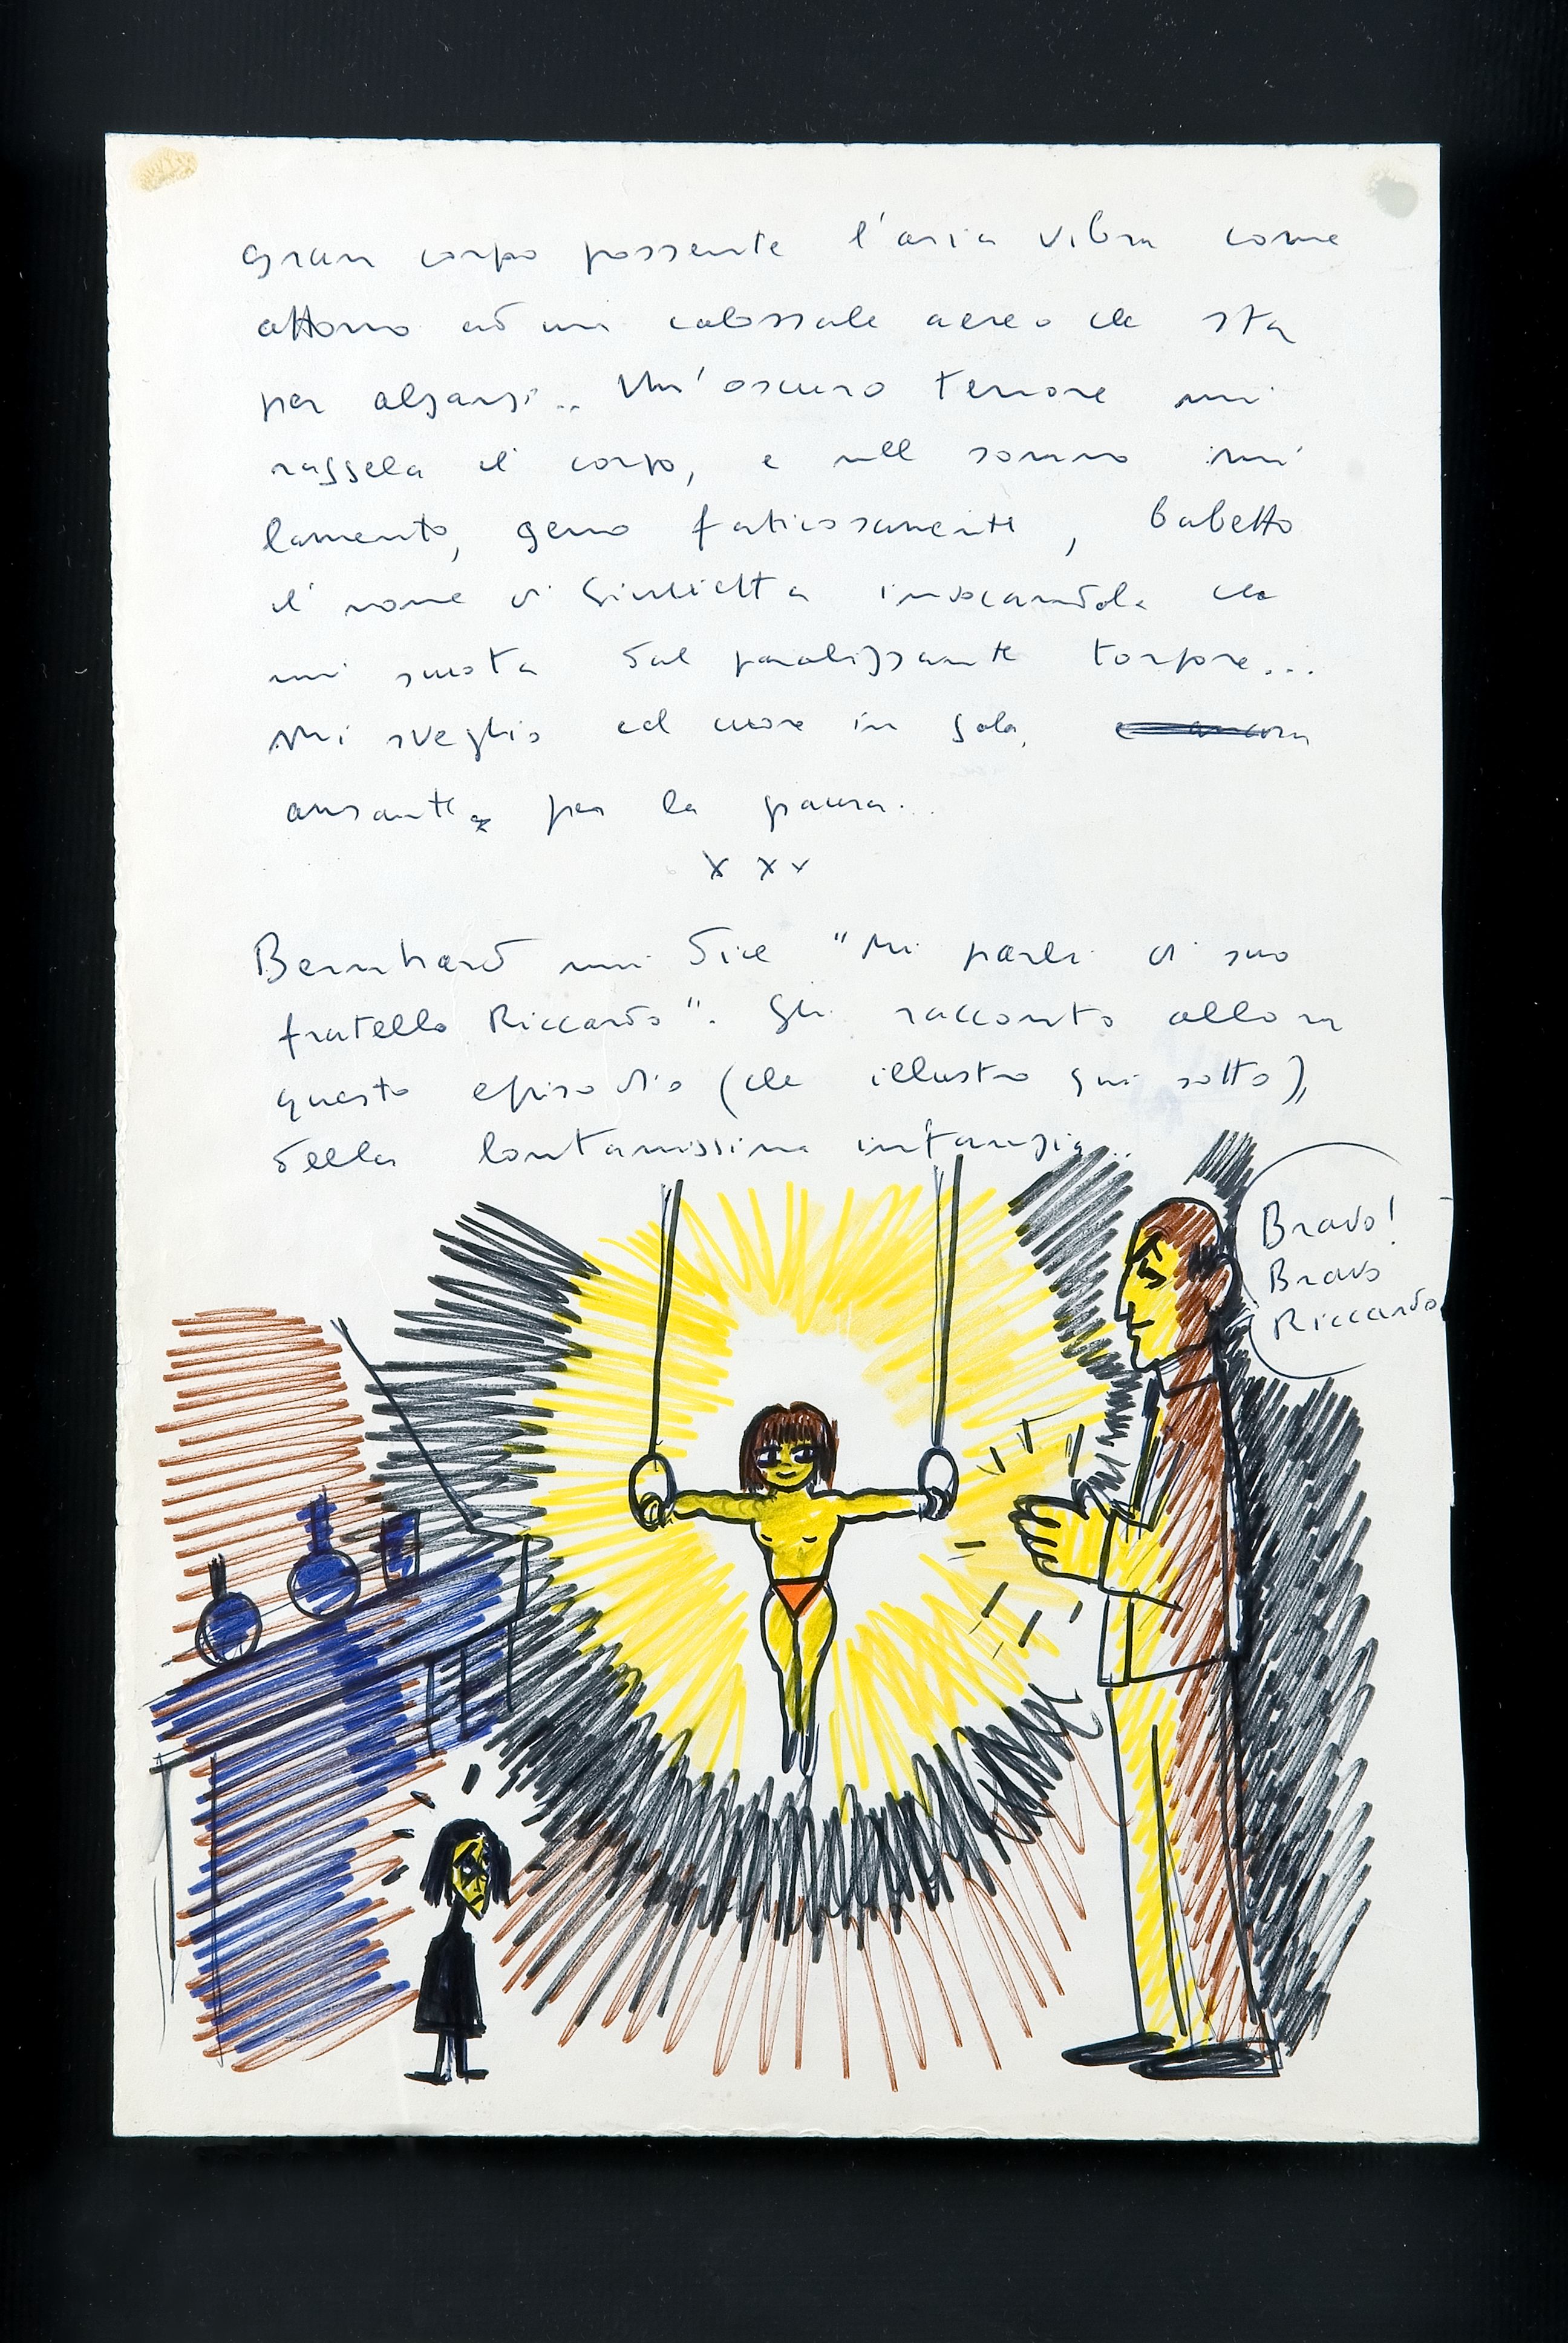 gran corpo possente l'aria vibra come
attorno ad un colossale aereo che sta
per alzarsi.. Un'oscuro terrore mi
raggela il corpo, e nell sonno mi
lamento, gemo faticosamente, balbetto
il nome di Giulietta invocandola che
mi scuota dal paralizzante torpore...
Mi sveglio col cuore in gola,
ansante per la paura..
x x x
Bernhard mi dice "Mi parli di suo
fratello Riccardo". Gli racconto allora
questo episodio (che illustro qui sotto),
della lontanissima infanzia...
Bravo!
Bravo
Riccardo